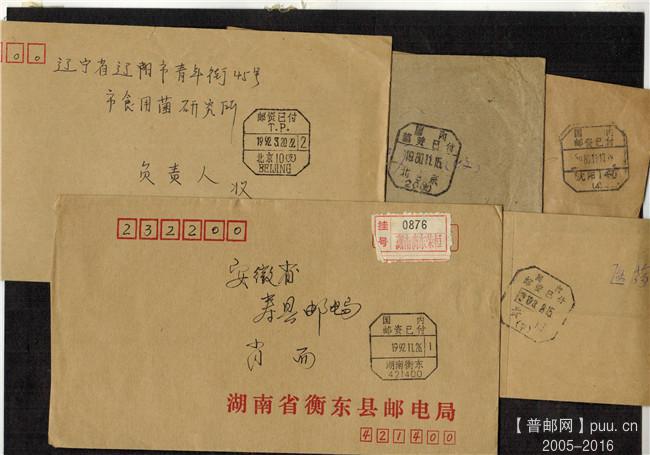 0 0
辽宁省辽阳市青年街45号
市食用菌研究所
负责人 收
邮资已付
T.P.
1992.3.20.22 2
北京10(支)
BEIJING
国内
邮资已付
1980.11.15
北京
国内
邮资已付
沈阳
232200
挂号
0876
湖南衡东荣桓
安徽省
寿县邮电局
肖 面
国内
邮资已付
1992.11.26 1
湖南衡东
421400
湖南省衡东县邮电局
421400
国内
邮资已付
【普邮网】puu.cn
2005-2016